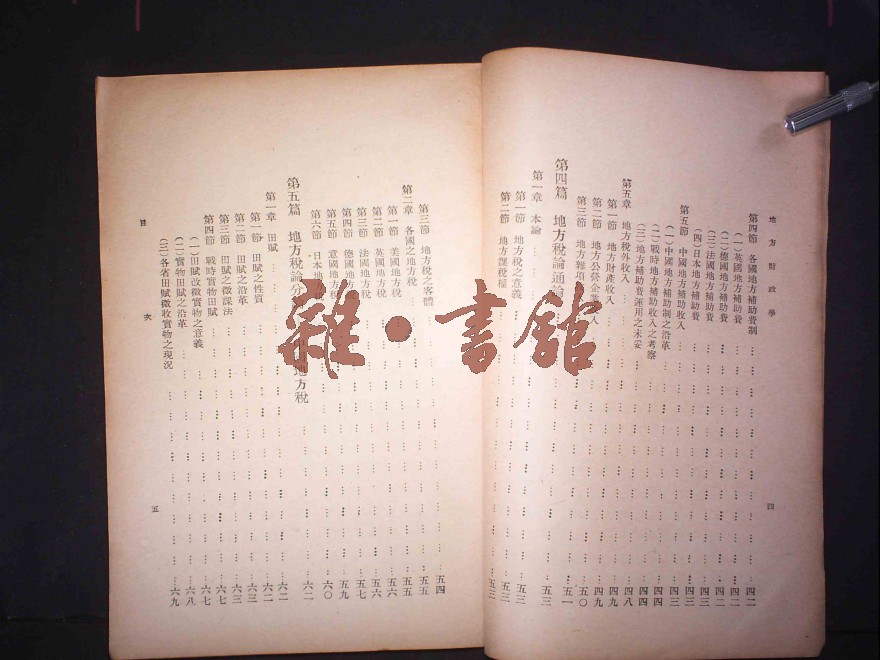 地方財政學
第四節 各國地方補助費制 … 四二
(一)英國地方補助費 … 四二
(二)德國地方補助費 … 四二
(三)法國地方補助費 … 四三
(四)日本地方補助費 … 四三
第五節 中國地方補助收入 … 四三
(一)中國地方補助制之沿革 … 四四
(二)戰時地方補助收入之考察 … 四四
(三)地方補助費運用之未妥 … 四八
第五章 地方稅外收入 … 四九
第一節 地方財產收入 … 四九
第二節 地方公營企業 入 … 五〇
第三節 地方雜項 … 五一
第四篇 地方稅論通論 … 五三
第一章 本論 … 五三
第一節 地方稅之意義 … 五三
第二節 地方課稅權 … 五三
四
第三節 地方稅之客體 … 五四
第二章 各國之地方稅 … 五五
第一節 美國地方稅 … 五五
第二節 英國地方稅 … 五六
第三節 法國地方稅 … 五六
第四節 德國地方稅 … 五七
第五節 意國地方稅 … 五九
第六節 日本地 … 六〇
第五篇 地方稅論分 地方稅 … 六二
第一章 田賦 … 六二
第一節 田賦之性質 … 六二
第二節 田賦之沿革 … 六三
第三節 田賦之徵課法 … 六三
第四節 戰時實物田賦 … 六七
(一)田賦改徵實物之意義 … 六七
(二)實物田賦之沿革 … 六八
(三)各省田賦徵收實物之現況 … 六九
目 次
五
雜·書館